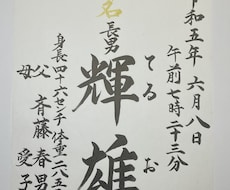 令和五年六月八日
午前七時二十三分
てるお
名
長男
輝雄
身長四十六センチ体重二八五
父 斉藤春男
母 愛子